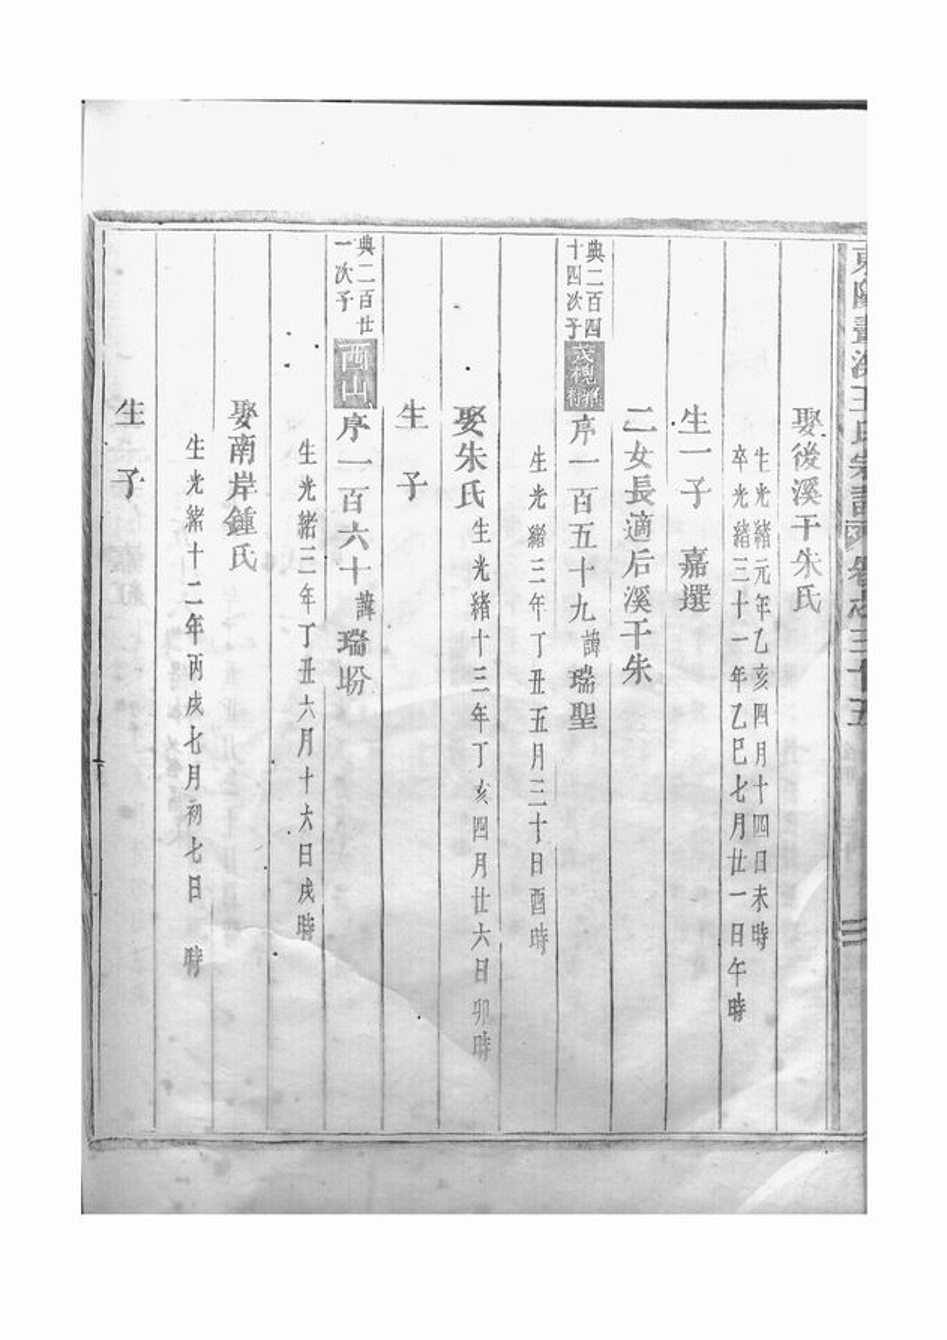 王氏宗譜
娶後溪干朱氏
生光緒元年乙亥四月十四日未時
卒光緒三十一年乙巳七月廿一日午時
生一子 嘉選
二女長適后溪干朱
典二百四
十四次子
序一百五十九諱瑞聖
生光緒三年丁丑五月三十日酉時
娶朱氏
生光緒十三年丁亥四月廿六日卯時
生 子
典二百廿
一次子
西山
序一百六十諱瑞盼
生光緒三年丁丑六月十六日戌時
娶南岸鍾氏
生光緒十二年丙戌七月初七日 時
生 子